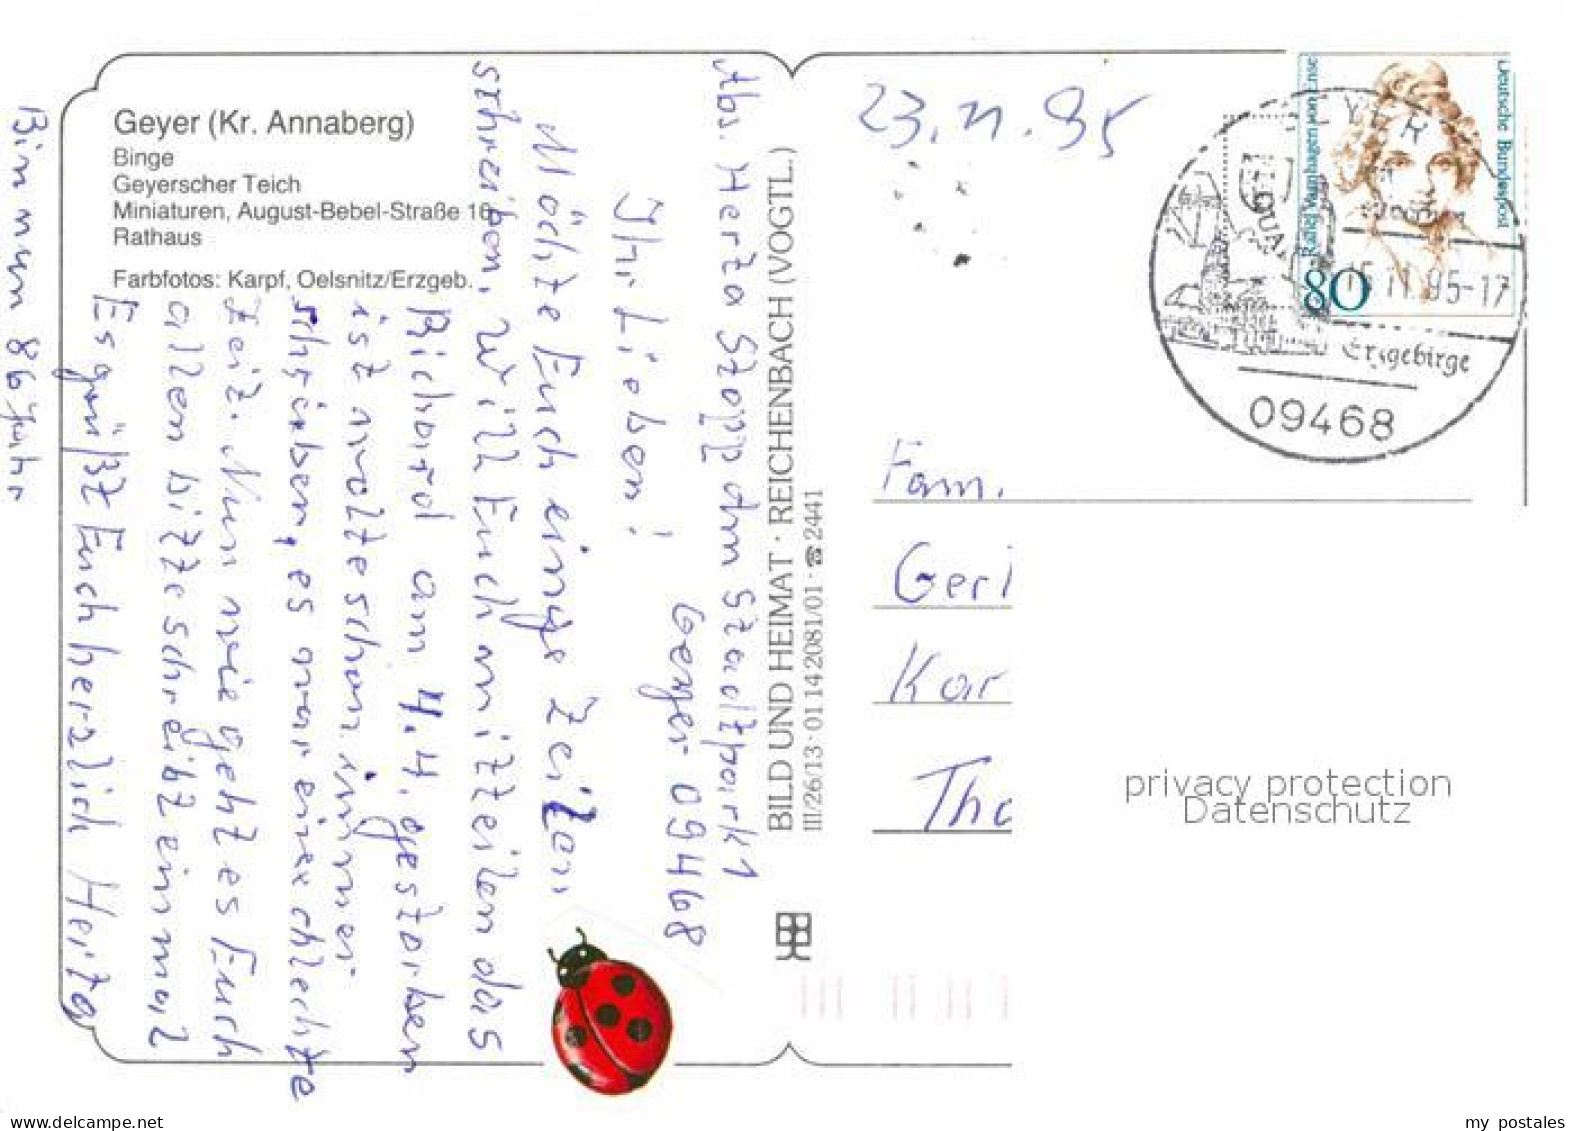 Geyer (Kr. Annaberg)
Binge
Geyerscher Teich
Miniaturen, August-Bebel-Straße 16
Rathaus
Farbfotos: Karpf, Oelsnitz/Erzgeb.
Abs. Herta Stopp Am Stadtpark 1
Geyer 09468
Ihr Lieben!
Möchte Euch einige Zeilen
schreiben, will Euch mitteilen das
Richard am 4.4. gestorben
ist wollte schon immer
schreiben, es war eine schlechte
Zeit. Nun wie geht es Euch
allen bitte schreibt einmal
Es grüßt Euch herzlich Herta
Bin nun 86 Jahr
BILD UND HEIMAT · REICHENBACH (VOGTL.)
III/26/13 · 01 14 2081/01 · ☎ 2441
23.11.95
Deutsche Bundespost
Rahel Varnhagen von Ense
80
GEYER
15.11.95-17
Erzgebirge
09468
Fam.
Gerl
Kar
Tho
privacy protection
Datenschutz
delcampe.net
my postales